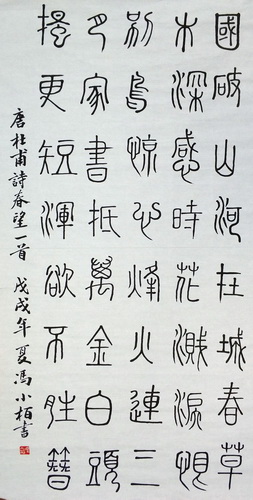 國破山河在城春草
木深感時花濺淚恨
別鳥惊心烽火連三
月家書抵萬金白頭
搔更短渾欲不胜簪
唐杜甫詩春望一首 戊戌年夏馮小栢書